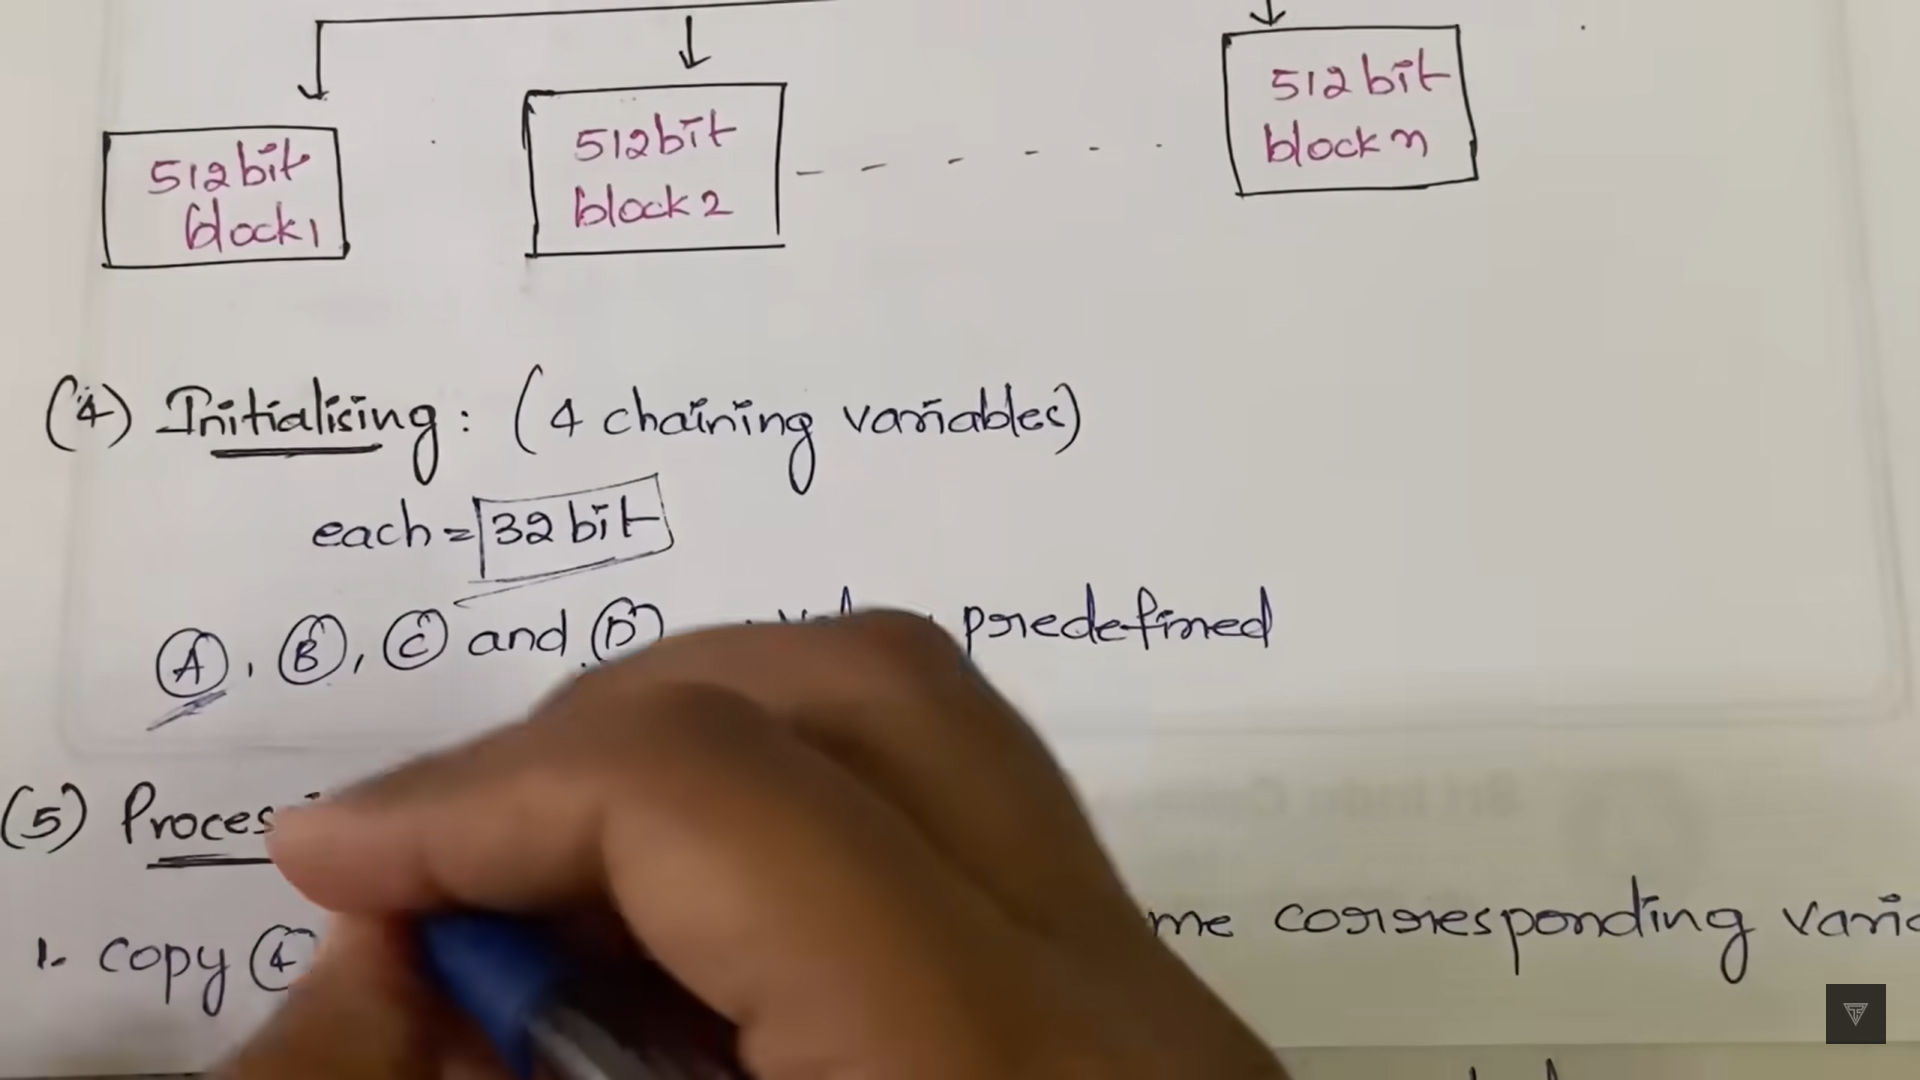 512 bit
block 1
512 bit
block 2
512 bit
block n
(4) Initialising: (4 chaining variables)
each = 32 bit
A, B, C and D predefined
(5)
1. copy 4 corresponding